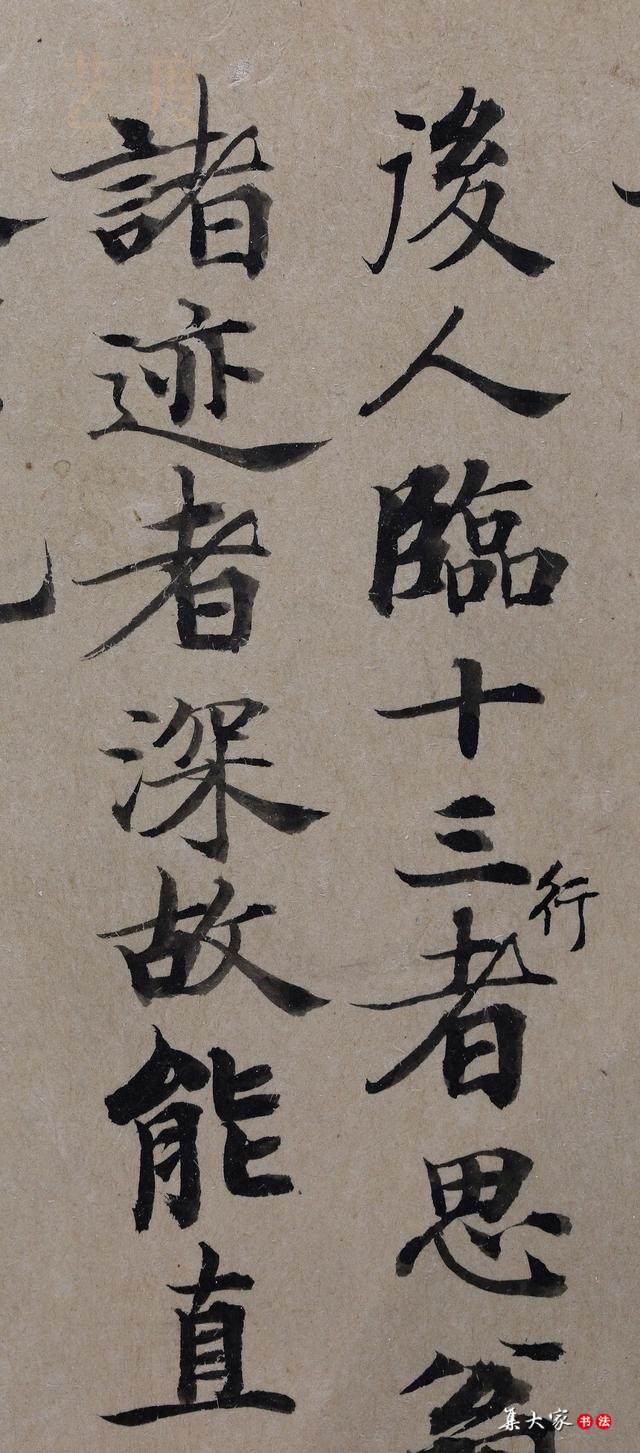 後人臨十三行者思
諸迹者深故能直
艺
集大家书法